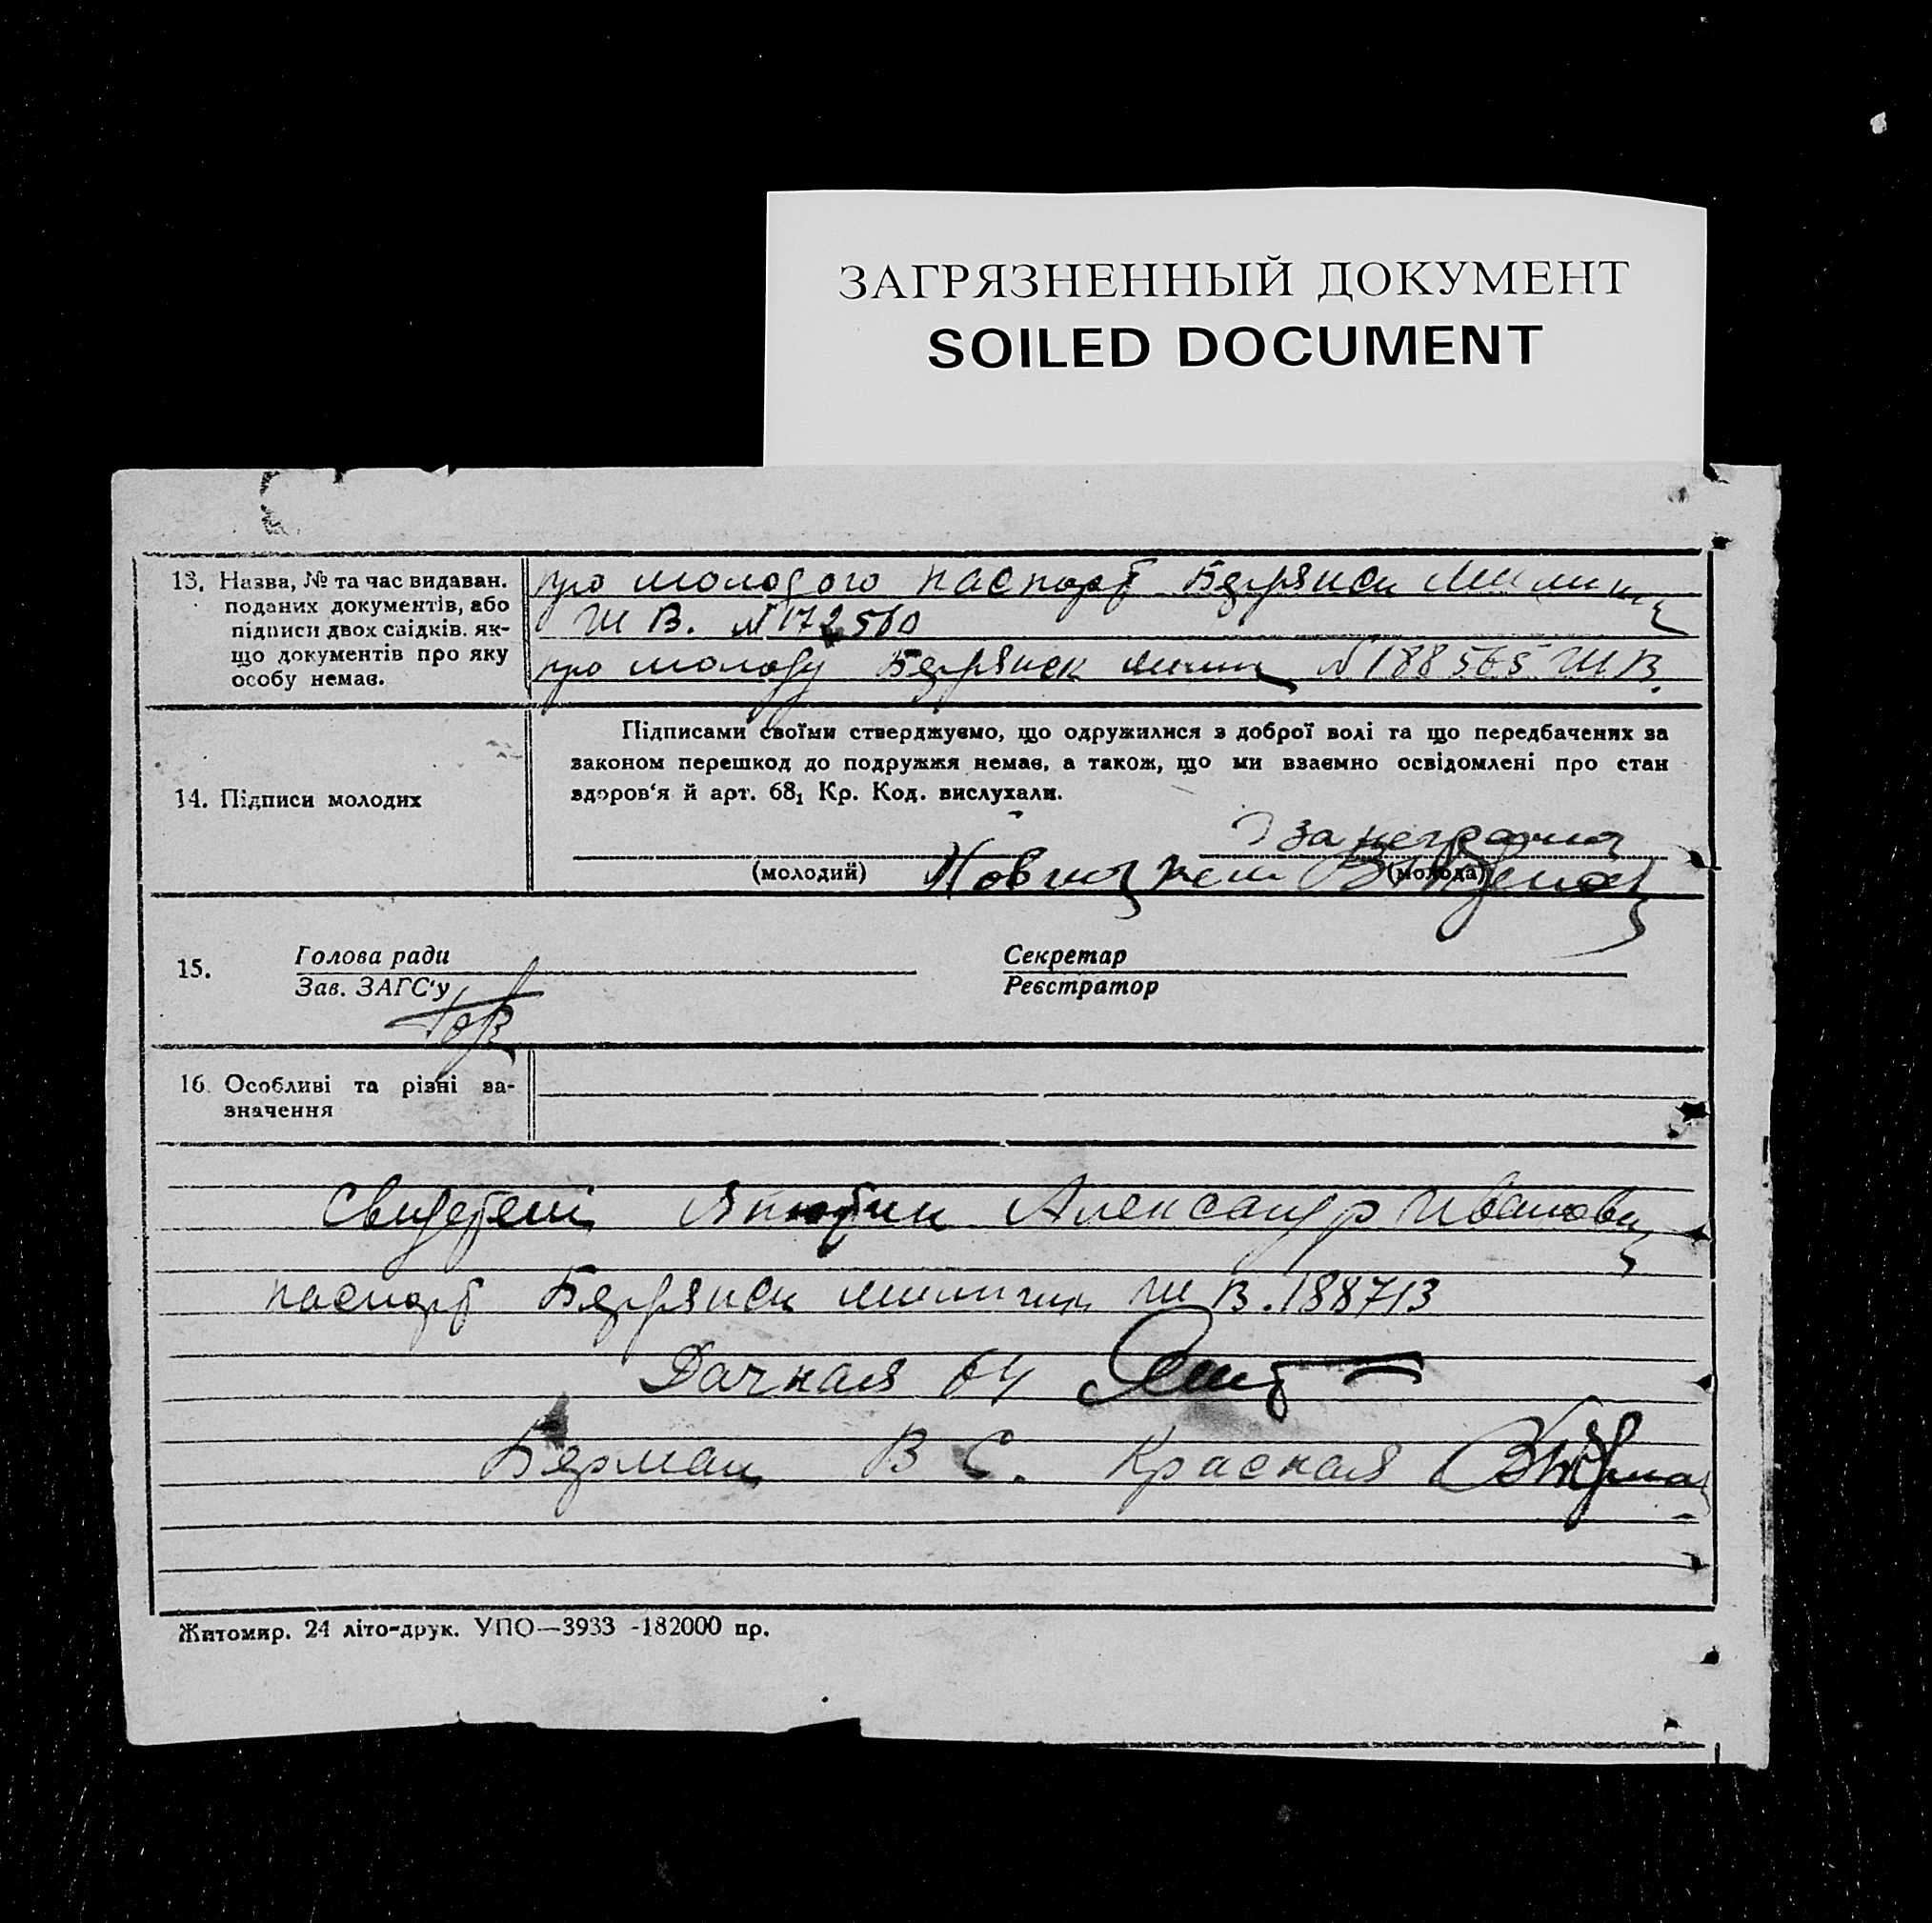 ЗАГРЯЗНЕННЫЙ ДОКУМЕНТ
SOILED DOCUMENT
13. Назва, № та час видаван.
поданих документів, або
підписи двох свідків. як-
що документів про яку
особу немає.
про молодого паспорт Бердянск Милиц
ШВ. № 172560
про молоду Бердянск милиц № 188565 ШВ.
14. Підписи молодих
Підписами своїми стверджуємо, що одружилися з доброї волі та що передбачених за
законом перешкод до подружжя немає, а також, що ми взаємно освідомлені про стан
здоров'я й арт. 68₁ Кр. Код. вислухали.
за неграмотн
(молодий) (молода)
15. Голова ради
Зав. ЗАГС'у
Секретар
Реєстратор
16. Особливі та різні за-
значення
Свидетели Александр Иванович
паспорт Бердянск милиции ШВ. 188713
Дачная 64
Берман В С. Красная
Житомир. 24 літо-друк. УПО—3933 -182000 пр.